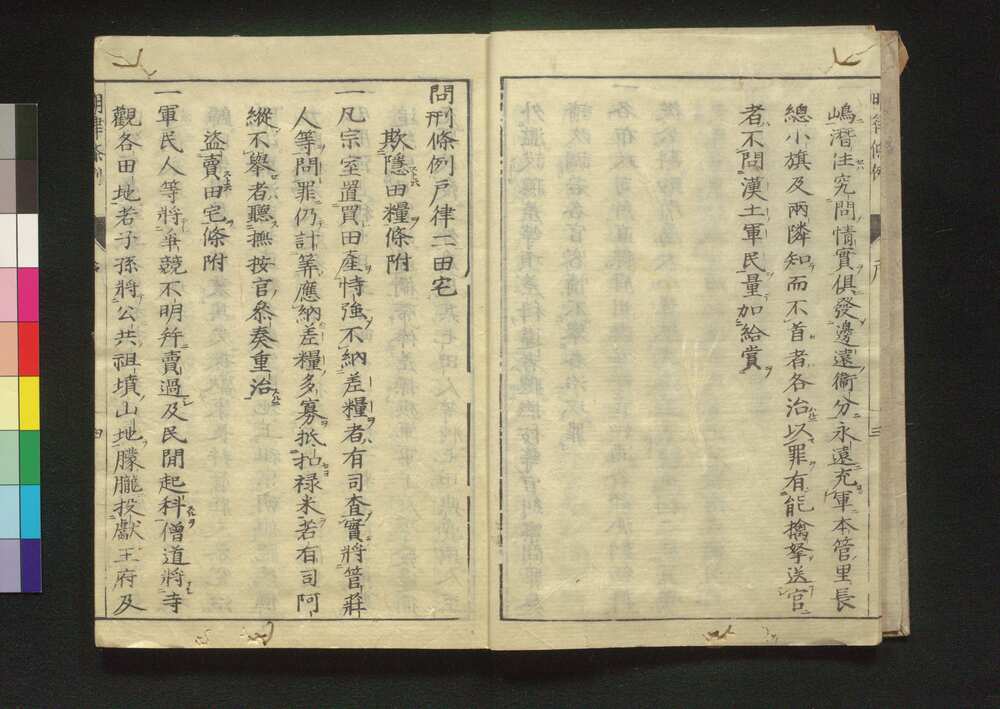 嶋潛住究問情實俱發邊遠衞分永遠充軍本管里長
總小旗及兩隣知而不首者各治以罪有能擒拏送官
者不問漢土軍民量加給賞
問刑條例戸律二田宅
欺隱田糧條附
一凡宗室置買田產恃強不納差糧者有司查實將管莊
人等問罪仍計筭應納差糧多寡抵扣禄米若有司阿
縱不舉者聽撫按官叅奏重治
盜賣田宅條附
一軍民人等將爭競不明幷賣過及民間起科僧道將寺
觀各田地若子孫將公共祖墳山地朦朧投獻王府及
明律條例